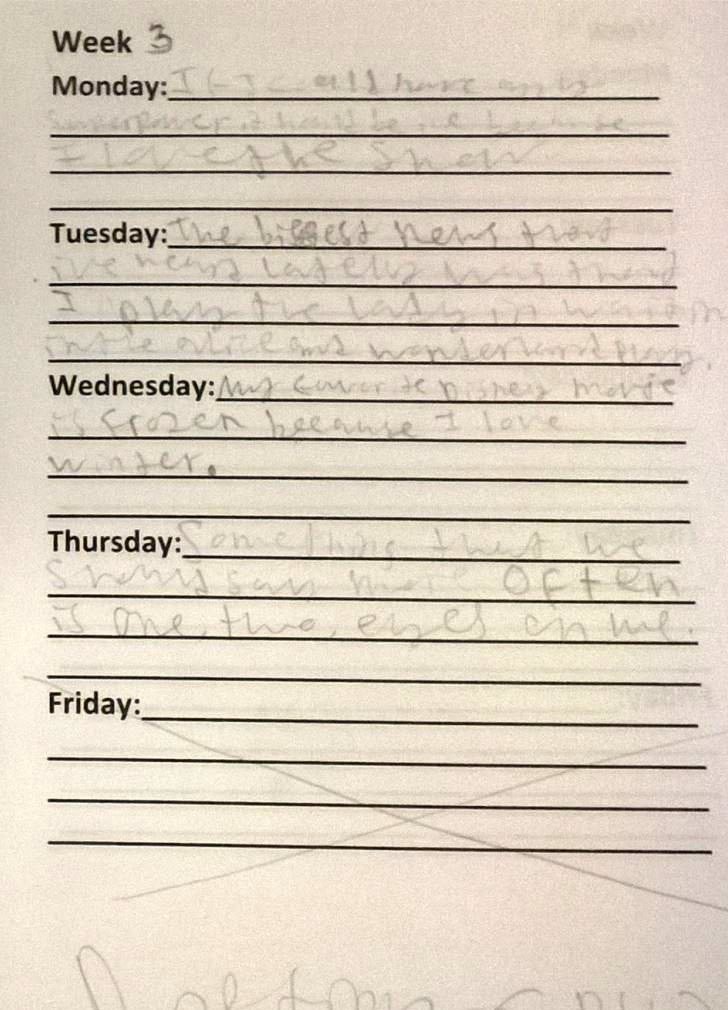 Week 3
Monday: If I could have any
superpower it would be ice because
I love the snow
Tuesday: The biggest news that
ive heard lately was that
I play the lady in
in the alice and wonderland play.
Wednesday: My favorite Disney movie
is frozen because I love
winter.
Thursday: Something that we
should say more often
is one, two, eyes on me.
Friday: